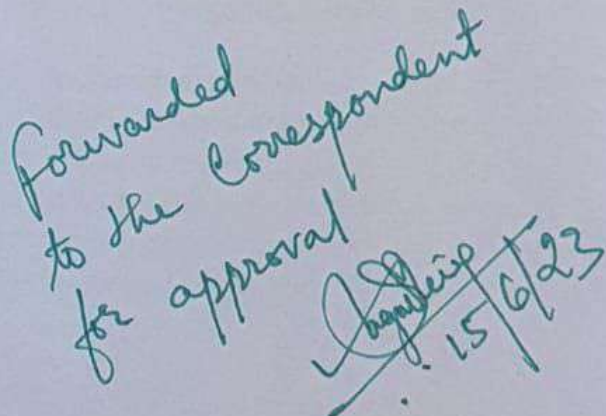 Forwarded
to the Correspondent
for approval
15/6/23